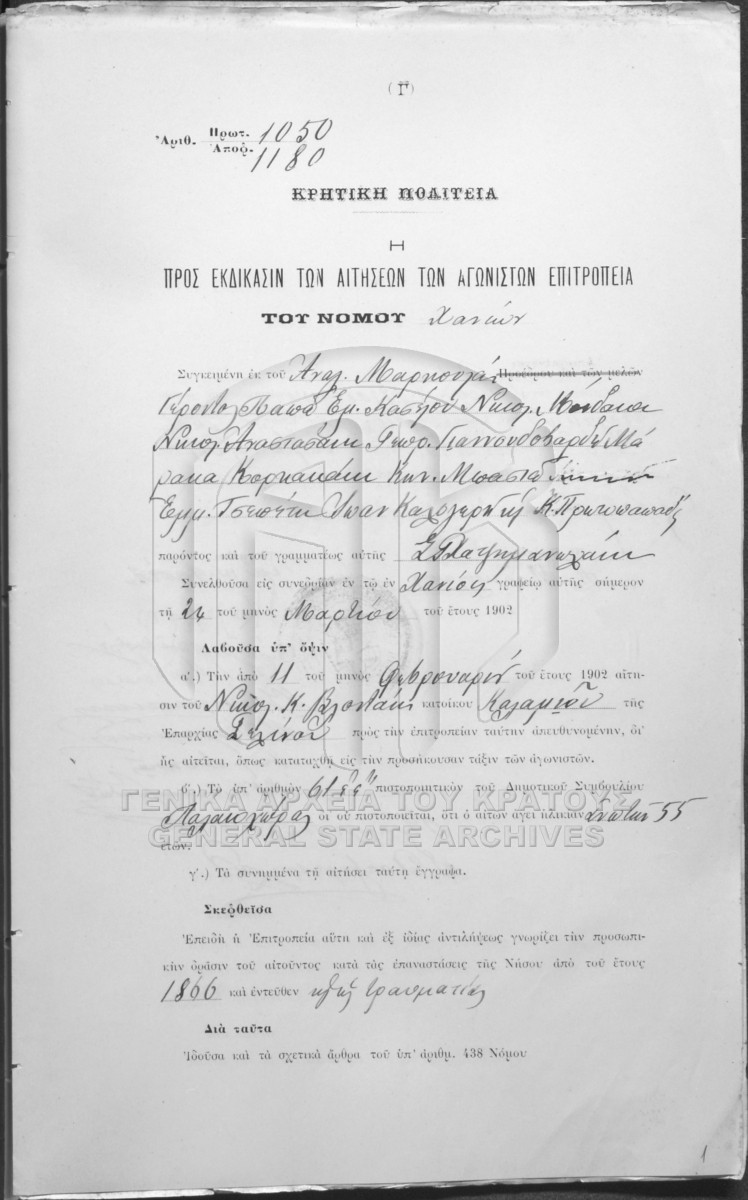 (Γ)
Ἀριθ. Πρωτ. 1050
Ἀποφ. 1180
ΚΡΗΤΙΚΗ ΠΟΛΙΤΕΙΑ
Η
ΠΡΟΣ ΕΚΔΙΚΑΣΙΝ ΤΩΝ ΑΙΤΗΣΕΩΝ ΤΩΝ ΑΓΩΝΙΣΤΩΝ ΕΠΙΤΡΟΠΕΙΑ
ΤΟΥ ΝΟΜΟΥ Χανίων
Συγκειμένη ἐκ τοῦ Ἀναγ. Μαρκουλάκη Προέδρου καὶ τῶν μελῶν
Γέροντος Παπᾶ Ἐμ. Νικολ.
Νικολ. Ἀναστασάκη Γεωρ. Μά
Κυρ.
Ἐμμ. Ἰωάν Καλογερῆ Κ. Πρωτοπαπαδάκη
παρόντος καὶ τοῦ γραμματέως αὐτῆς Σ Χατζημανωλάκη
Συνελθοῦσα εἰς συνεδρίαν ἐν τῷ ἐν Χανίοις γραφείῳ αὐτῆς σήμερον
τῇ 24 τοῦ μηνὸς Μαρτίου τοῦ ἔτους 1902
Λαβοῦσα ὑπ' ὄψιν
α'.) Τὴν ἀπὸ 11 τοῦ μηνὸς Φεβρουαρίου τοῦ ἔτους 1902 αἴτη-
σιν τοῦ Νικολ. Κ. Βλοντάκη κατοίκου Καλαμιοῦ τῆς
Ἐπαρχίας Σελίνου πρὸς τὴν ἐπιτροπείαν ταύτην ἀπευθυνομένην, δι'
ἧς αἰτεῖται, ὅπως καταταχθῇ εἰς τὴν προσήκουσαν τάξιν τῶν ἀγωνιστῶν.
β'.) Τὸ ὑπ' ἀριθμὸν 61 πιστοποιητικὸν τοῦ Δημοτικοῦ Συμβουλίου
Παλαιοχώρας δι' οὗ πιστοποιεῖται, ὅτι ὁ αἰτῶν ἄγει ἡλικίαν ἐτῶν 55
ἐτῶν.
γ'.) Τὰ συνημμένα τῇ αἰτήσει ταύτῃ ἔγγραφα.
Σκεφθεῖσα
Ἐπειδὴ ἡ Ἐπιτροπεία αὕτη καὶ ἐξ ἰδίας ἀντιλήψεως γνωρίζει τὴν προσωπι-
κὴν δρᾶσιν τοῦ αἰτοῦντος κατὰ τὰς ἐπαναστάσεις τῆς Νήσου ἀπὸ τοῦ ἔτους
1866 καὶ ἐντεῦθεν τραυματίας
Διὰ ταῦτα
Ἰδοῦσα καὶ τὰ σχετικὰ ἄρθρα τοῦ ὑπ' ἀριθμ. 438 Νόμου
1
ΓΕΝΙΚΑ ΑΡΧΕΙΑ ΤΟΥ ΚΡΑΤΟΥΣ
GENERAL STATE ARCHIVES